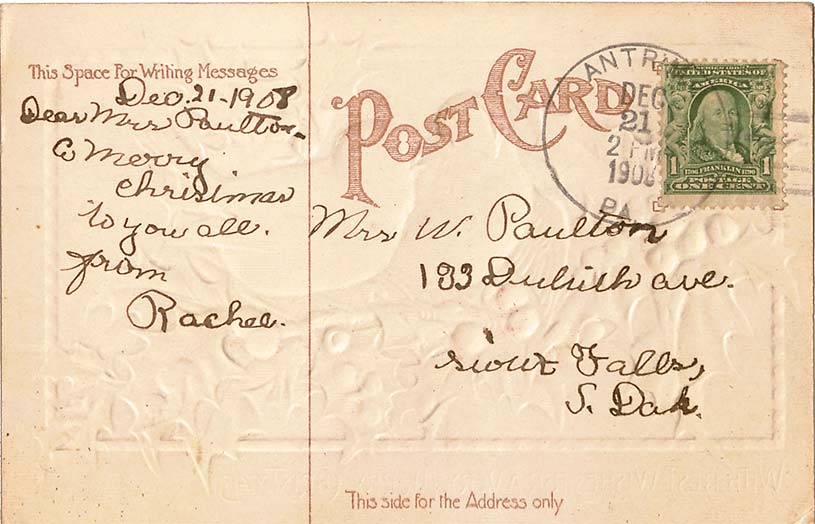 This Space For Writing Messages
Dec. 21-1908
Dear Mrs Paulton-
A Merry
Christmas
to you all.
from
Rachel.
POST CARD
ANTRI
DEC
21
2 PM
1908
PA
SERIES 1902
UNITED STATES OF
1 1
1706 FRANKLIN 1790
POSTAGE
ONE CENT
Mrs W. Paulton
133 Duluth ave.
Sioux Falls,
S. Dak.
This side for the Address only